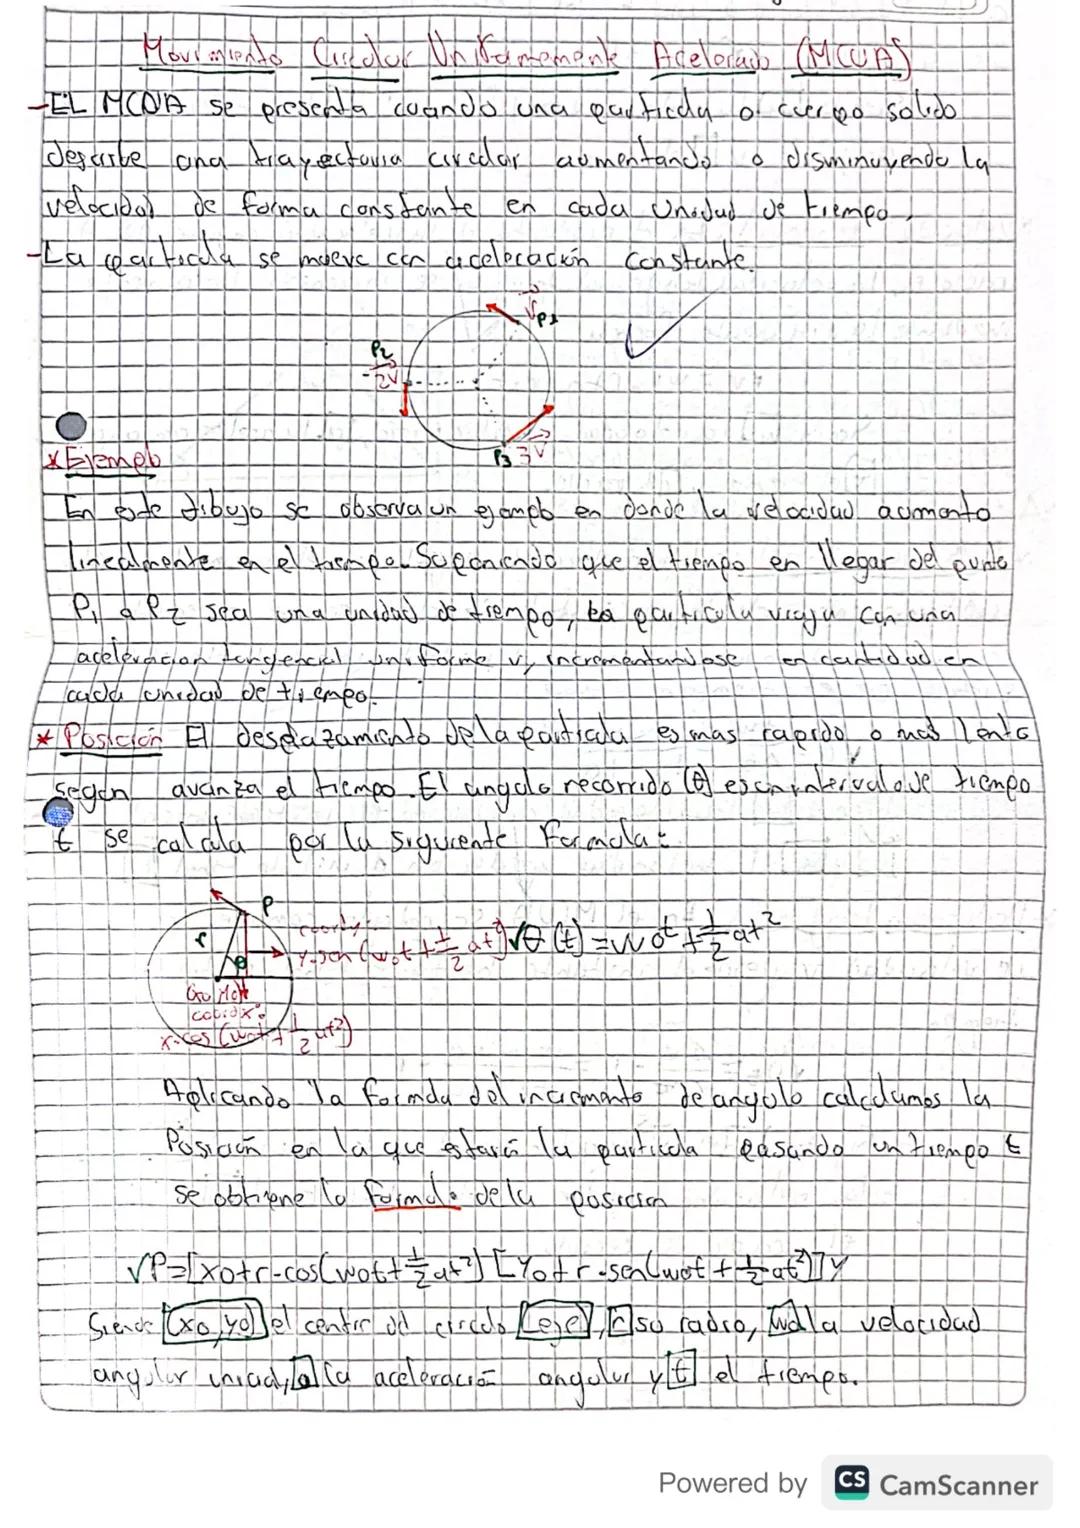 Movimiento Circular Uniformemente Acelerado (MCUA)
-EL MCUA se presenta cuando una particula o cuerpo solido
describe una trayectoria circular aumentando o disminuyendo la
velocidad de forma constante en cada Unidad de tiempo.
-La particula se mueve con aceleración constante.
Vp1
P2
-2V
P3 3V
* Ejemplo
En este dibujo se observa un ejemplo en donde la velocidad aumento
linealmente en el tiempo. Suponiendo que el tiempo en llegar del punto
P1 a P2 sea una unidad de tiempo, la particula viaja con una
aceleracion tangencial uniforme v, incrementandose en cantidad en
cada unidad de tiempo.
* Posición El desplazamiento de la particula es mas rapido o mas lento
segun avanza el tiempo. El angulo recorrido (θ) es un intervalo de tiempo
t se calcula por la siguiente formula:
P
r
θ
coordy:
y=sen(wot+1/2 at²) √θ(t)=wot+1/2at²
x=cos(wot+1/2at²)
Aplicando la formula del incremento de angulo calculamos la
Posición en la que estará la particula pasando un tiempo t
se obtiene la formula de la posicion
√P=[xo+r-cos(wot+1/2at²)[Yo+r.sen(wot+1/2at²)]y
Siendo (xo,yo) el centro del circulo (eje), r su radio, wo la velocidad
angular inicial, a la aceleració angular y t el tiempo.
Powered by CS CamScanner